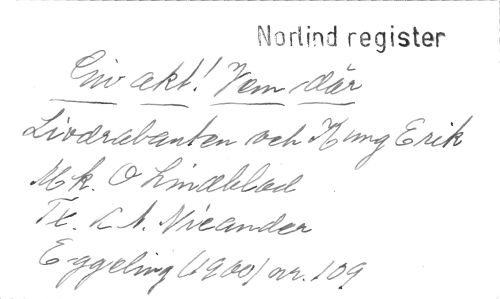 Norlind register
Giv akt! Vem där
Livdrabanten och Kung Erik
Mk. O Lindblad
Tx. K A. Nicander
Eggeling (1900) nr. 109